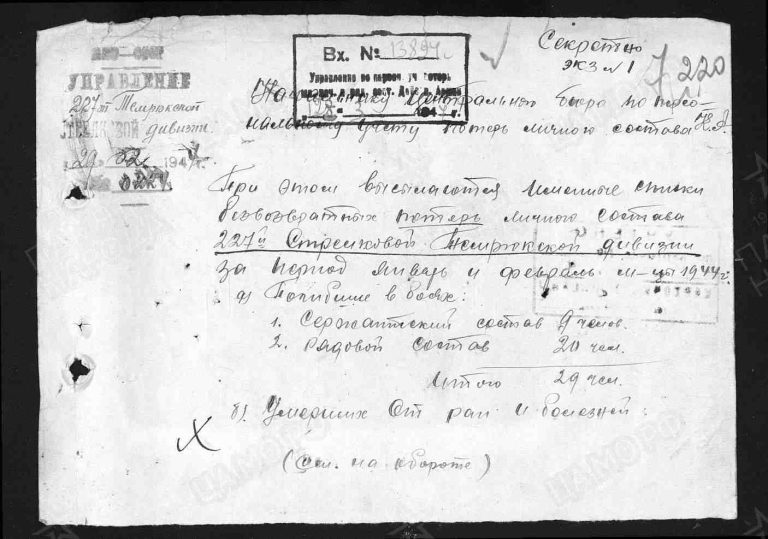 НКО-СССР
УПРАВЛЕНИЕ
227й Темрюкской
дивизии
29 02 1944
Вх. № 13894с
Управление по персон. уч. потерь
1944
Секретно
экз № 1
220
Начальнику Центрального бюро по персо-
нальному учету потерь личного состава К.А.
При этом высылаются именные списки
безвозвратных потерь личного состава
227й Стрелковой Темрюкской дивизии
за период январь и февраль м-цы 1944г.
а) Погибшие в боях:
1. Сержантский состав 9 челов.
2. Рядовой состав 20 чел.
Итого 29 чел.
б). Умерших от ран и болезней:
(См. на обороте)
ЦАМО РФ